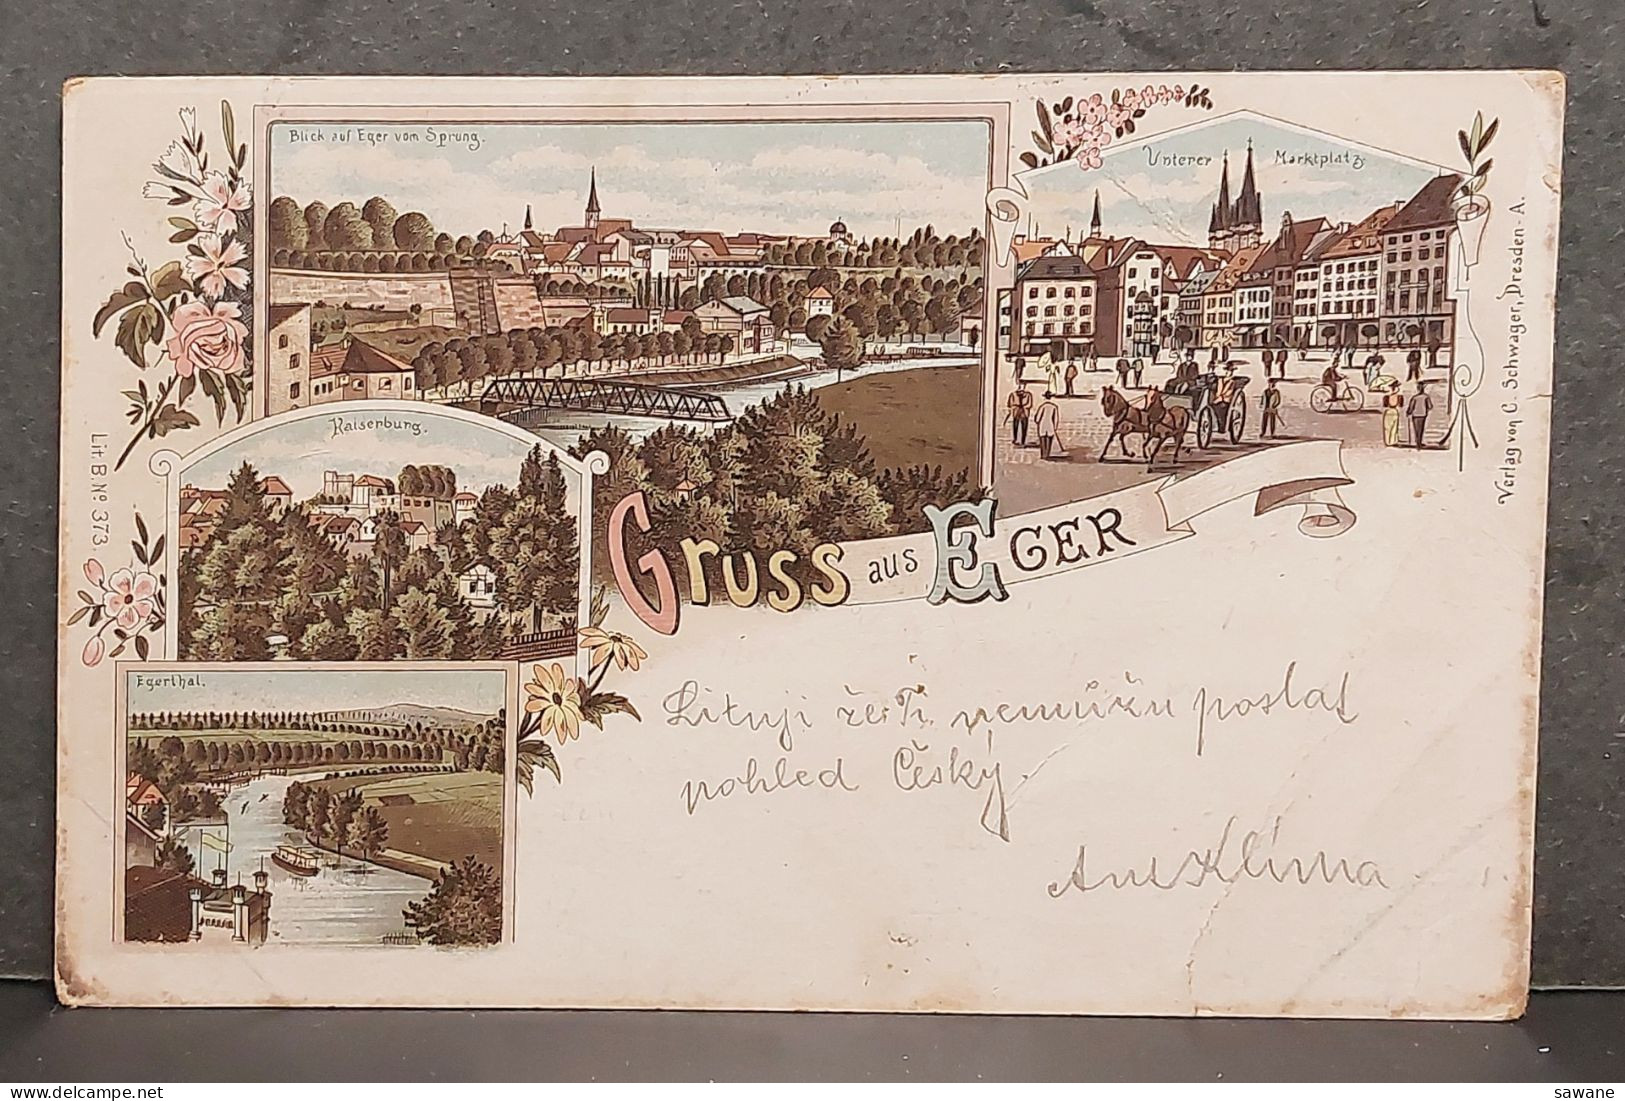 Blick auf Eger vom Sprung.
Unterer Marktplatz
Kaiserburg.
Gruss aus EGER
Egerthal.
Lituji že Ti nemůžu poslat
pohled Český.
Klíma
Lit B. No 373.
Verlag von C. Schwager, Dresden-A.
sawane